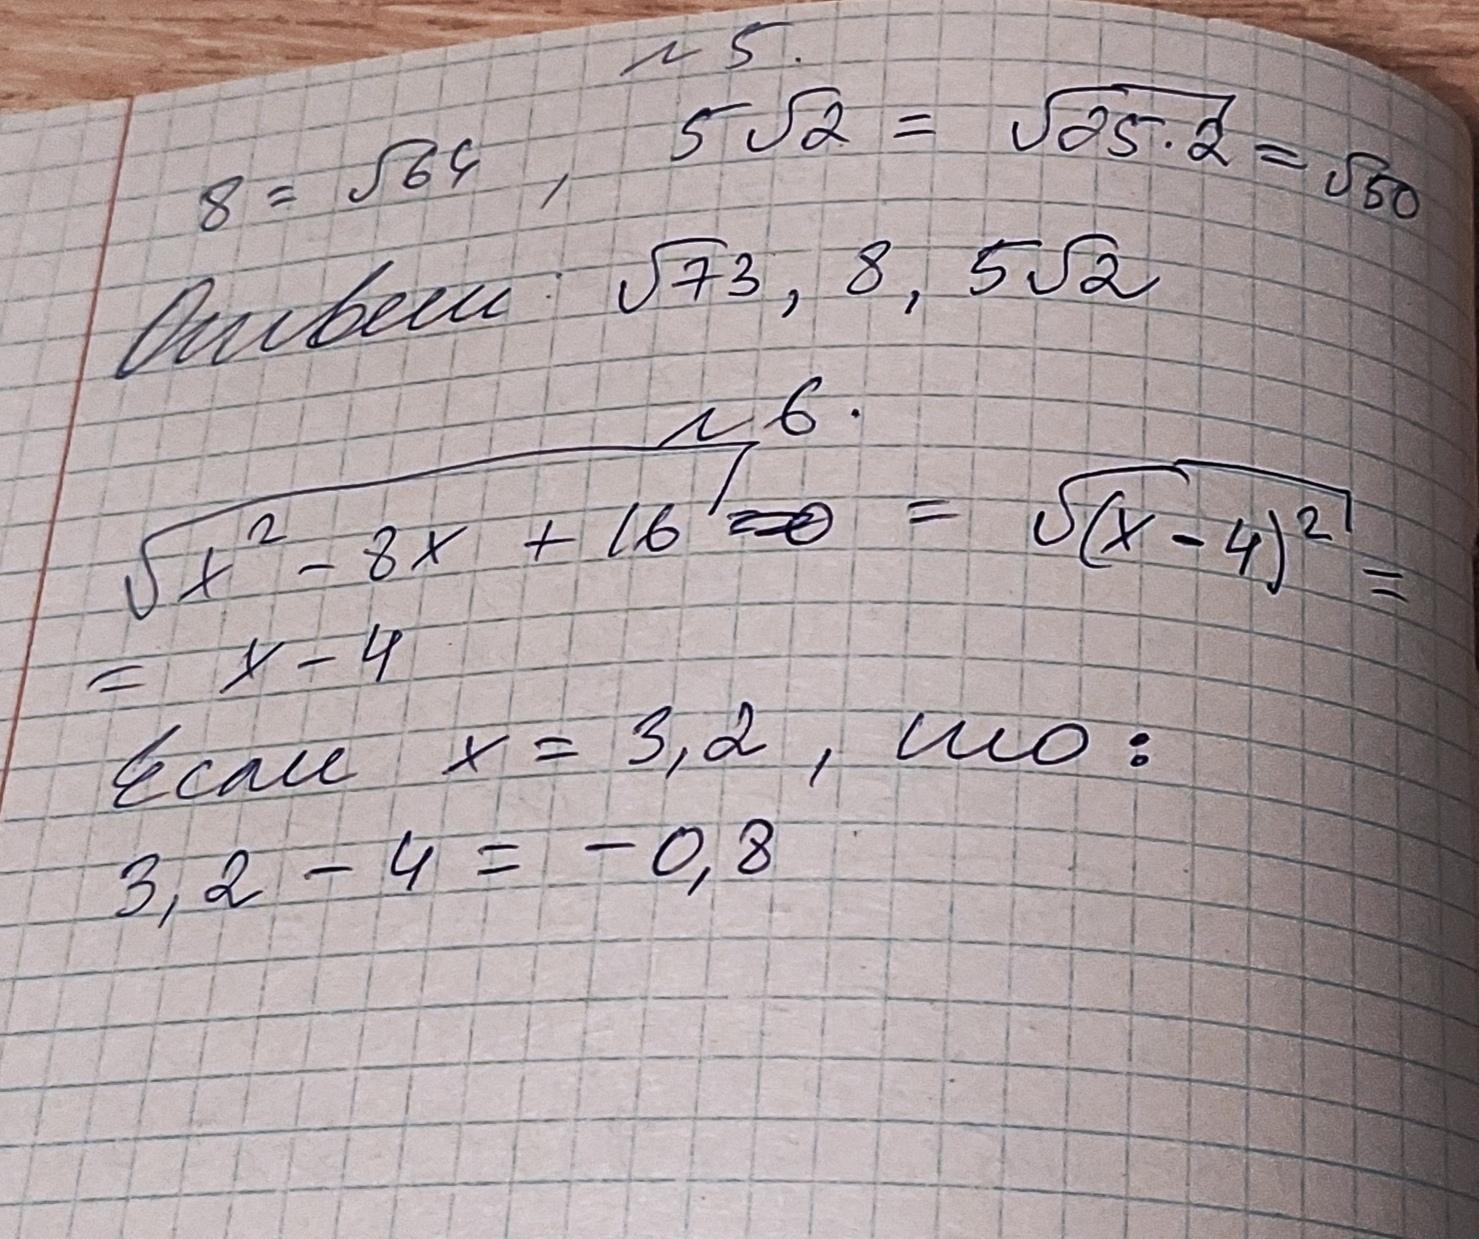 №5.
8 = √64, 5√2 = √25·2 = √50
Ответ: √73, 8, 5√2
№6.
√x² - 8x + 16 = √(x - 4)² =
= x - 4
Если x = 3,2, то:
3,2 - 4 = -0,8